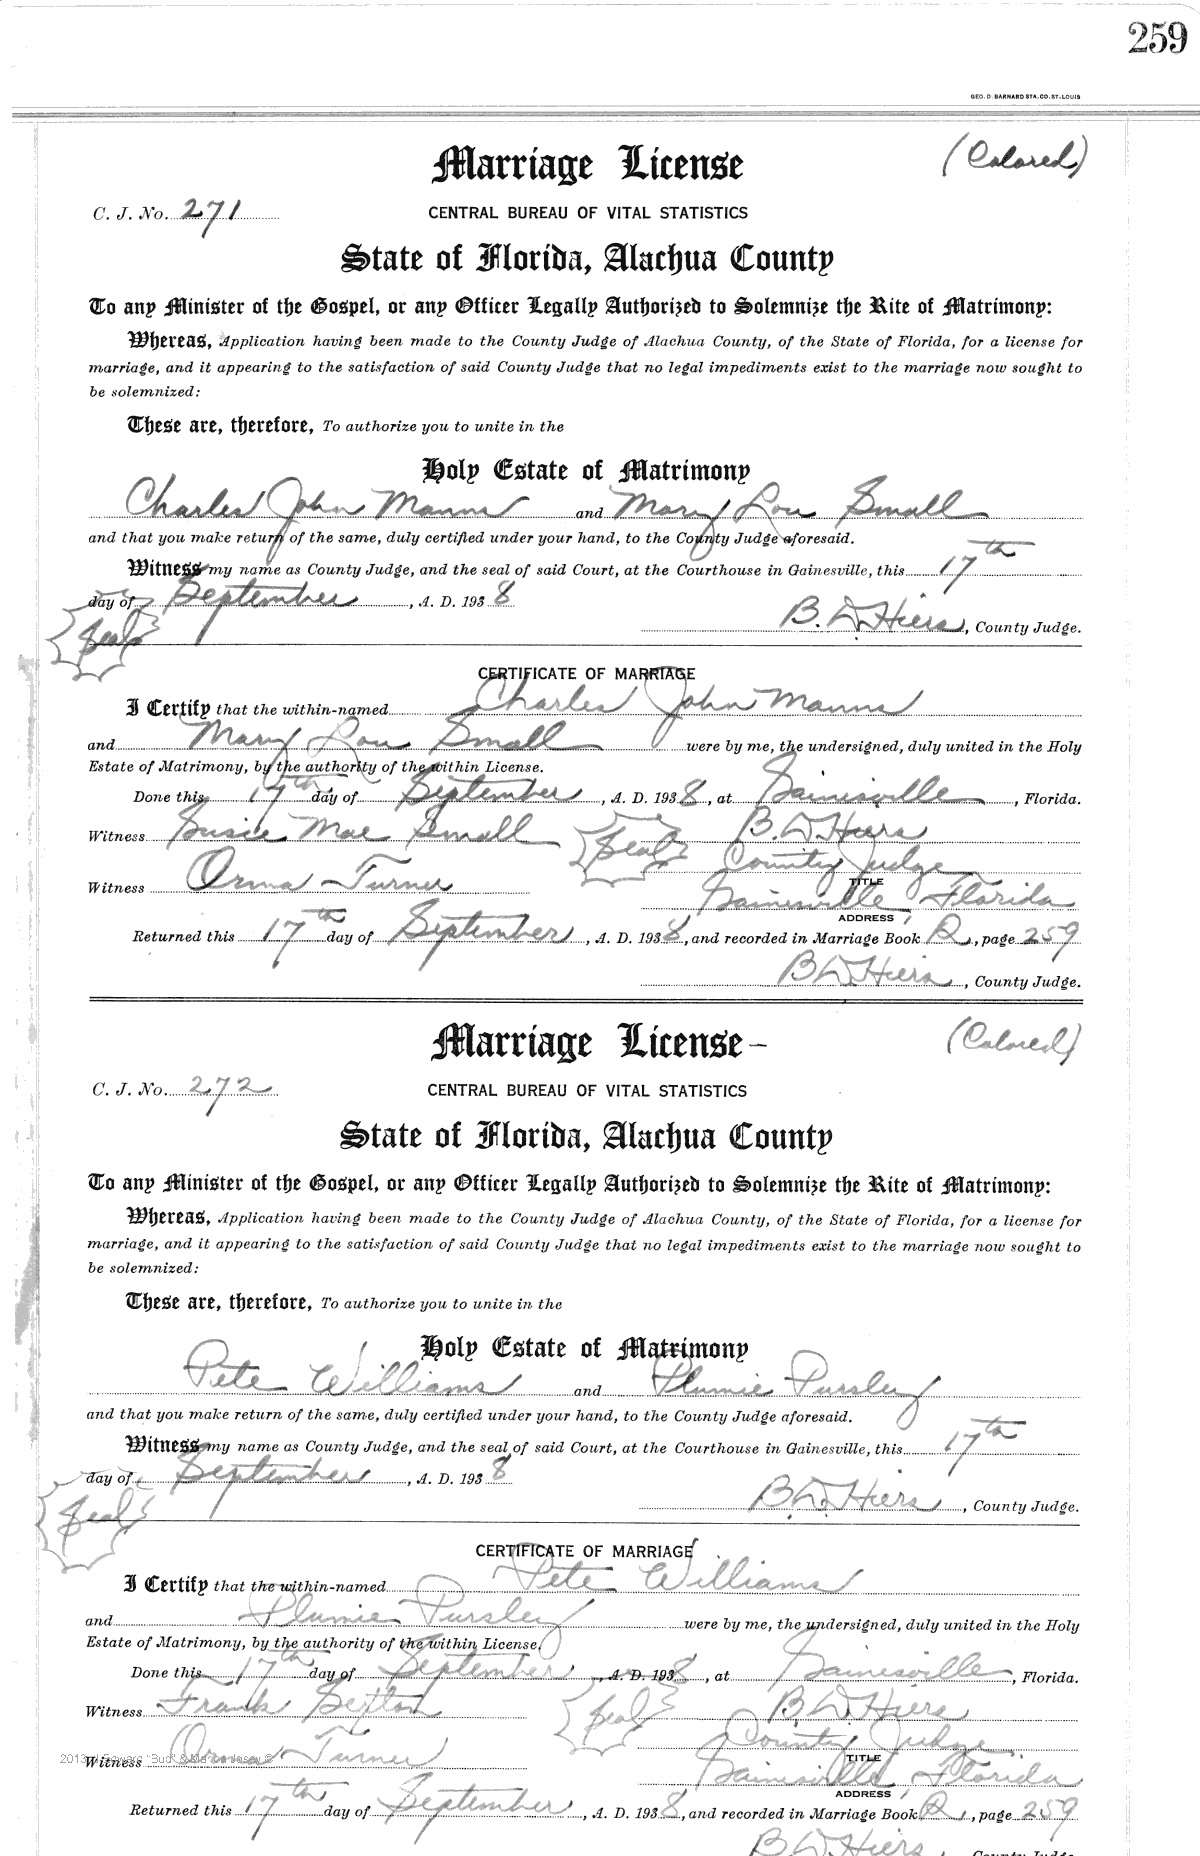 259
GEO. D. BARNARD STA. CO. ST. LOUIS
Marriage License (Colored)
C. J. No. 271 CENTRAL BUREAU OF VITAL STATISTICS
State of Florida, Alachua County
To any Minister of the Gospel, or any Officer Legally Authorized to Solemnize the Rite of Matrimony:
Whereas, Application having been made to the County Judge of Alachua County, of the State of Florida, for a license for
marriage, and it appearing to the satisfaction of said County Judge that no legal impediments exist to the marriage now sought to
be solemnized:
These are, therefore, To authorize you to unite in the
Holy Estate of Matrimony
Charles John Manns and Mary Lou Small
and that you make return of the same, duly certified under your hand, to the County Judge aforesaid.
Witness my name as County Judge, and the seal of said Court, at the Courthouse in Gainesville, this 17th
day of September, A. D. 1938
Seal B. D. Hiers, County Judge.
CERTIFICATE OF MARRIAGE
I Certify that the within-named Charles John Manns
and Mary Lou Small were by me, the undersigned, duly united in the Holy
Estate of Matrimony, by the authority of the within License.
Done this 17th day of September, A. D. 1938, at Gainesville, Florida.
Witness Susie Mae Small Seal B. D. Hiers
County Judge
TITLE
Witness Orma Turner Gainesville, Florida
ADDRESS
Returned this 17th day of September, A. D. 1938, and recorded in Marriage Book R, page 259
B D. Hiers, County Judge.
Marriage License - (Colored)
C. J. No. 272 CENTRAL BUREAU OF VITAL STATISTICS
State of Florida, Alachua County
To any Minister of the Gospel, or any Officer Legally Authorized to Solemnize the Rite of Matrimony:
Whereas, Application having been made to the County Judge of Alachua County, of the State of Florida, for a license for
marriage, and it appearing to the satisfaction of said County Judge that no legal impediments exist to the marriage now sought to
be solemnized:
These are, therefore, To authorize you to unite in the
Holy Estate of Matrimony
Pete Williams and Plumie Pursley
and that you make return of the same, duly certified under your hand, to the County Judge aforesaid.
Witness my name as County Judge, and the seal of said Court, at the Courthouse in Gainesville, this 17th
day of September, A. D. 1938
Seal B. D. Hiers, County Judge.
CERTIFICATE OF MARRIAGE
I Certify that the within-named Pete Williams
and Plumie Pursley were by me, the undersigned, duly united in the Holy
Estate of Matrimony, by the authority of the within License.
Done this 17th day of September, A. D. 1938, at Gainesville, Florida.
Witness Frank Sexton Seal B. D. Hiers
County Judge
TITLE
Witness Orma Turner Gainesville, Florida
ADDRESS
Returned this 17th day of September, A. D. 1938, and recorded in Marriage Book R, page 259
B. D. Hiers, County Judge.